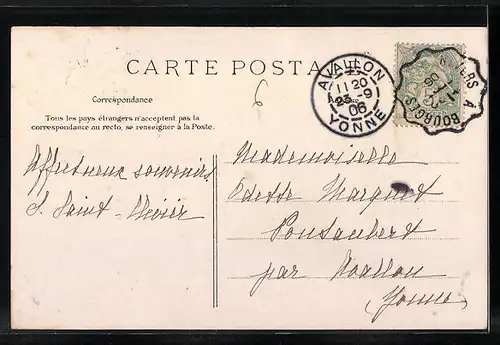 CARTE POSTA
Correspondance
Tous les pays étrangers n'acceptent pas la
correspondance au recto, se renseigner à la Poste.
6
AVALLON
11 20
23 -9
06
YONNE
ERS A BOURGES
Affectueux souvenirs
Mademoiselle
Odette Marquet
Pontaubert
par Avallon
Yonne